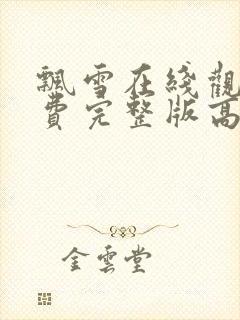 飄雪在綫觀
費完整版高
金雲堂